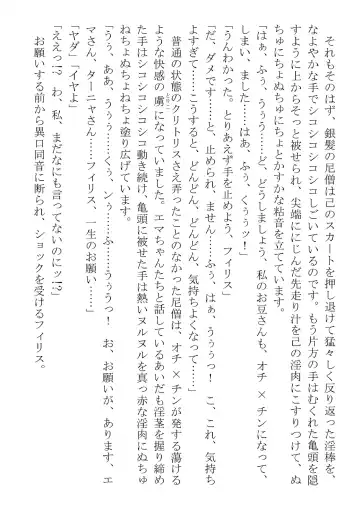 それもそのはず、銀髪の尼僧は己のスカートを押し退けて猛々しく反り返った淫棒、
なよやかな手でシコシコシコシコしごいているのです。もう片方の手はむくれた亀頭を隠
すようにそっと被せられ、尖端ににじんだ先走り汁を己の淫肉にこすりつけて、ぬ
ちゅにちょぬちゅにちょとかすかな粘音を立てています。
「はぁ、ふぅ、うぅぅ……ど、どうしましょう、私のお豆さんも、オチ×チンになって
しまい、ました……はぁ、ふぅ、くぅぅッ！」
「うんわかった。とりあえず手を止めよう、フィリス」
「だ、ダメです……と、止められ、ません……ふぅ、はぅ、うぅぅぅ！　こ、これ、気持ち
よすぎて……こうすると、どんどん、どんどん、気持ちよくなって……」
普通の状態のクリトリスさえ弄ったことのなかった尼僧は、オチ×チンが発する蕩ける
ような快感の虜になっていました。エマちゃんたちと話しているあいだも淫茎を握り締め
た手はシコシコシコシコ動き続け、亀頭に被せた手は熱いヌルヌルを真っ赤な淫肉にぬちゅ
ねちょぬちょねちょ塗り広げています。
「うぅ、ああ、うぅぅ……くぅ、ンぅ……ふぅ……うぅぅっ！　お、お願いが、あります、エ
マさん、ターニャさん……フィリス、一生のお願い……」
「ヤダ」「イヤよ」
「ええっ!?　わ、私、まだなにも言ってないのにッ!?」
お願いする前から異口同音に断られ、ショックを受けるフィリス。